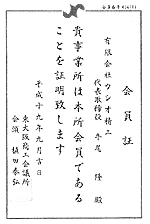 会員証
有限会社ウシオ精工
代表取締役 牛尾 隆殿
貴事業所は本所会員である
ことを証明致します
平成十九年九月吉日
東大阪商工会議所
会頭